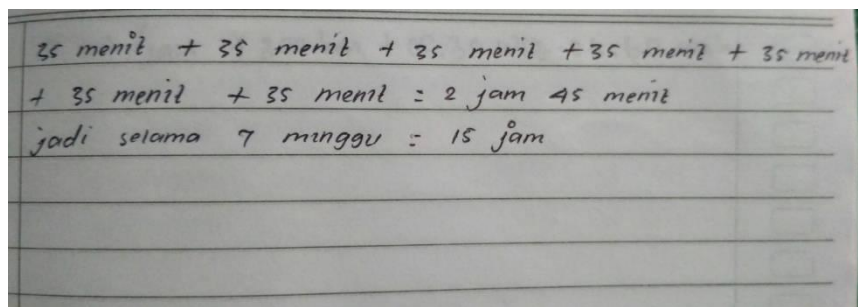 35 menit + 35 menit + 35 menit + 35 menit + 35 menit
+ 35 menit + 35 menit = 2 jam 45 menit
jadi selama 7 minggu = 15 jam